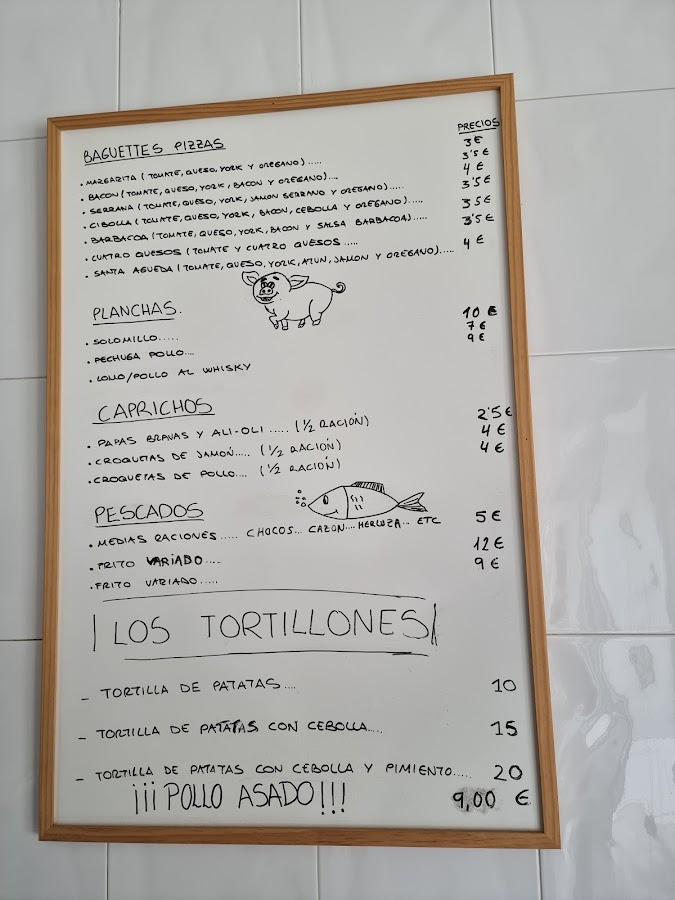 PRECIOS
BAGUETTES PIZZAS
. MARGARITA (TOMATE, QUESO, YORK Y OREGANO)..... 3€
. BACON (TOMATE, QUESO, YORK, BACON Y OREGANO).... 3'5€
. SERRANA (TOMATE, QUESO, YORK, JAMON SERRANO Y OREGANO)..... 4€
. CIBOLLA (TOMATE, QUESO, YORK, BACON, CEBOLLA Y OREGANO)..... 3'5€
. BARBACOA (TOMATE, QUESO, YORK, BACON Y SALSA BARBACOA)..... 3'5€
. CUATRO QUESOS (TOMATE Y CUATRO QUESOS ..... 3'5€
. SANTA AGUEDA (TOMATE, QUESO, YORK, ATUN, JAMON Y OREGANO)..... 4€
PLANCHAS.
. SOLOMILLO..... 10€
. PECHUGA POLLO.... 7€
. LOMO/POLLO AL WHISKY 9€
CAPRICHOS
. PAPAS BRAVAS Y ALI-OLI ..... (1/2 RACIÓN) 2'5€
. CROQUETAS DE JAMON..... (1/2 RACIÓN) 4€
. CROQUETAS DE POLLO.... (1/2 RACIÓN) 4€
PESCADOS
. MEDIAS RACIONES ..... CHOCOS... CAZON.... MERLUZA... ETC 5€
. FRITO VARIADO.... 12€
. FRITO VARIADO..... 9€
LOS TORTILLONES
- TORTILLA DE PATATAS.... 10
- TORTILLA DE PATATAS CON CEBOLLA..... 15
- TORTILLA DE PATATAS CON CEBOLLA Y PIMIENTO..... 20
¡¡¡POLLO ASADO!!! 9,00 €